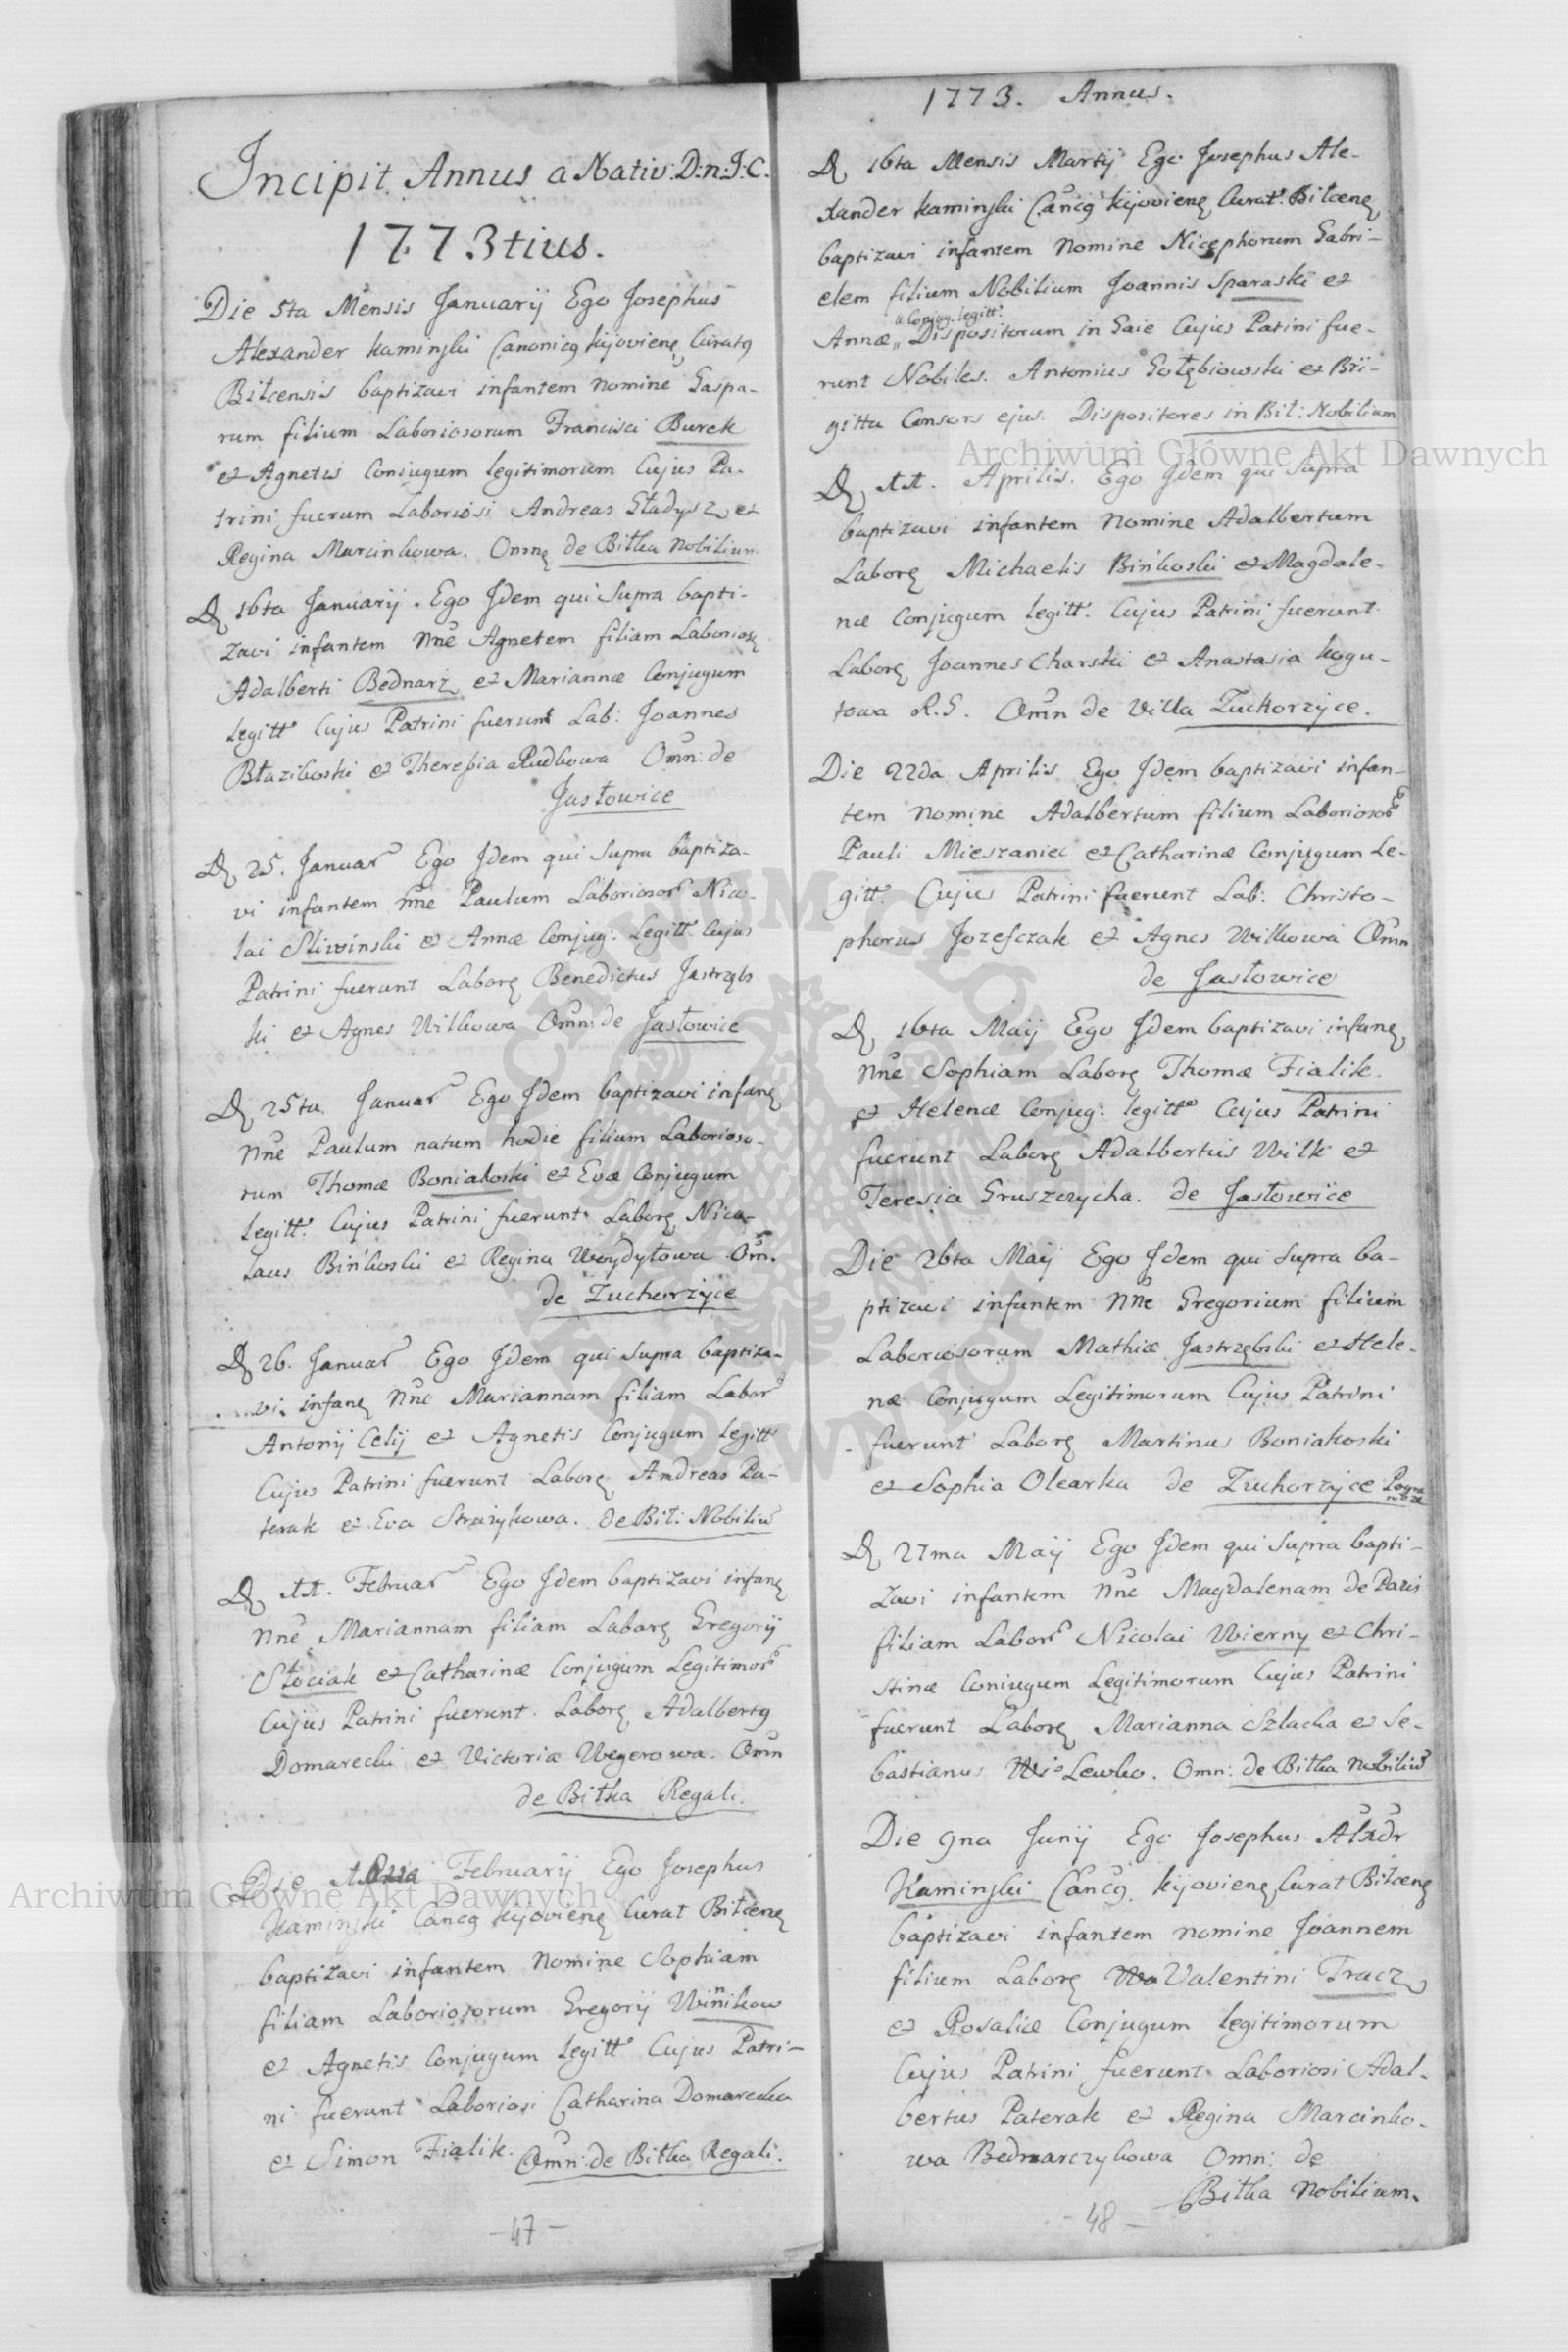 Incipit Annus a Nativ: D:n:J:C.
1773tius.
Die 5ta Mensis Januarij Ego Josephus
Alexander Kaminski Canonicq Kijovienę Curatq
Biłcensis baptizavi infantem nomine Gaspa-
rum filium Laboriosorum Francisci Burek
et Agnetis Coniugum legitimorum Cujus Pa-
trini fuerum Laboriosi Andreas Gładysz et
Regina Marcinkowa. Omnę de Biłka Nobilium
D 16ta Januarij. Ego Jdem qui Supra bapti-
zavi infantem Nne Agnetem filiam Laboriosę
Adalberti Bednarz et Mariannæ Conjugum
legitt. Cujus Patrini fuerunt Lab: Joannes
Błazikoski et Theresia Rudkowa Omn: de
Jasłowice
D 25. Januar Ego Jdem qui Supra baptiza-
vi infantem Nne Paulum Laboriosor Nico-
lai Sliwinski et Annæ Conjug: Legitt. Cujus
Patrini fuerunt Laborę Benedictus Jastrzębs
ki et Agnes Wilkowa Omn: de Jasłowice
D 25ta Januar Ego Jdem baptizavi infanę
Nne Paulum natum hodie filium Laborioso-
rum Thomæ Boniakoski et Evæ Conjugum
Legitt. Cujus Patrini fuerunt Laborę Nico-
laus Bińkoski et Regina Woydyłowa Om.
de Zuchorzyce
D 26. Januar Ego Jdem qui Supra baptiza-
vi infanę Nne Mariannam filiam Labor
Antonij Celij et Agnetis Conjugum legitt
Cujus Patrini fuerunt Laborę Andreas Pa-
terak et Eva Strażykowa. de Bił: Nobiliu
D 11. Februar Ego Jdem baptizavi infanę
Nne Mariannam filiam Laborę Gregorij
Słociak et Catharinæ Conjugum Legitimor
Cujus Patrini fuerunt. Laborę Adalbertq
Domarecki et Victoria Wegerowa. Omn
de Biłka Regali.
Die Februarij Ego Josephus
Kaminski Cancq Kijovienę Curat Biłcenę
baptizavi infantem Nomine Sophiam
filiam Laboriosorum Gregorij Winnikow
et Agnetis Conjugum legitt. Cujus Patri-
ni fuerunt Laboriosi Catharina Domarecka
et Simon Fialik. Omn: de Biłka Regali.
-47-
1773. Annus.
D 16ta Mensis Martij Ego Josephus Ale-
xander Kaminski Cancq Kijovienę Curat. Biłcenę
baptizavi infantem Nomine Nicephorum Gabri-
elem filium Nobilium Joannis Sparaski et
" Conjug. legitt.
Annæ " Dispositorum in Gaie Cujus Patini fue-
runt Nobiles. Antonius Gołębiowski et Bri-
gitta Consors ejus. Dispositores in Bił: Nobilium
D 11. Aprilis. Ego Jdem qui Supra
baptizavi infantem Nomine Adalbertum
Laborę Michaelis Bińkoski et Magdale-
næ Conjugum legitt. Cujus Patrini fuerunt
Laborę Joannes Charski et Anastasia Kogu-
towa R.G. Omn de Villa Zuchorzyce.
Die 22da Aprilis Ego Jdem baptizavi infan-
tem Nomine Adalbertum filium Laboriosor
Pauli Mieszaniec et Catharinæ Conjugum Le-
gitt. Cujus Patrini fuerunt Lab: Christo-
phorus Jozefczak et Agnes Wilkowa Omn
de Jasłowice
D 16ta Maij Ego Jdem baptizavi infanę
Nne Sophiam Laborę Thomæ Fialik.
et Helenæ Conjug: legitt Cujus Patrini
fuerunt Laborę Adalbertus Wilk et
Teresia Gruszczycha. de Jasłowice
Die 26ta Maij Ego Jdem qui Supra ba-
ptizavi infantem Nne Gregorium filium
Laboriosorum Mathiæ Jastrzębski et Hele-
næ Conjugum Legitimorum Cujus Patrini
fuerunt Laborę Martinus Boniakoski
et Sophia Olearka de Zuchorzyce
D 27ma Maij Ego Jdem qui Supra bapti-
zavi infantem Nne Magdalenam de Pazis
filiam Labor Nicolai Wierny et Chri-
stinæ Coniugum Legitimorum Cujus Patrini
fuerunt Laborę Marianna Szlacha et Se-
bastianus Lewko. Omn: de Biłka Nobiliu
Die 9na Junij Ego Josephus Alxdr
Kaminski Cancq. Kijovienę Curat Biłcenę
baptizavi infantem nomine Joannem
filium Laborę Valentini Tracz
et Rosaliæ Conjugum legitimorum
Cujus Patrini fuerunt Laboriosi Adal-
bertus Paterak et Regina Marcinko-
wa Bednarczykowa Omn: de
Biłka Nobilium.
-48-
Archiwum Główne Akt Dawnych
Archiwum Główne Akt Dawnych